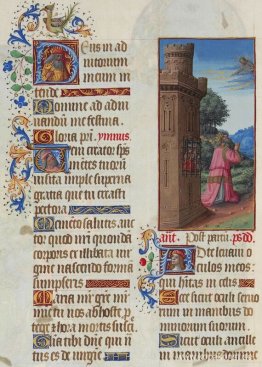 Deus in ad
iutorium
meum in
tende
Domine ad adiu
vandum me festina
Gloria pri. ymnus.
Veni creator sps
mentes tuorū
visita imple superna
gratia que tu creasti
pectora
Memento salutis auc
tor quod nri quondā
corporis ex illibata vir
gine nascendo formā
sumpseris
Maria mr grē mr
mīe tu nos ab hoste p
tege et hora mortis suscipe
Gloria tibi dnē qui na
tus es de virgīe
ant. Post partū. ps. Dd.
Ad te levavi o
culos meos:
qui hītas in celis
Ecce sicut oculi servo
rum in manibus do
minorum suorum
Sicut oculi ancille
in manibus domine